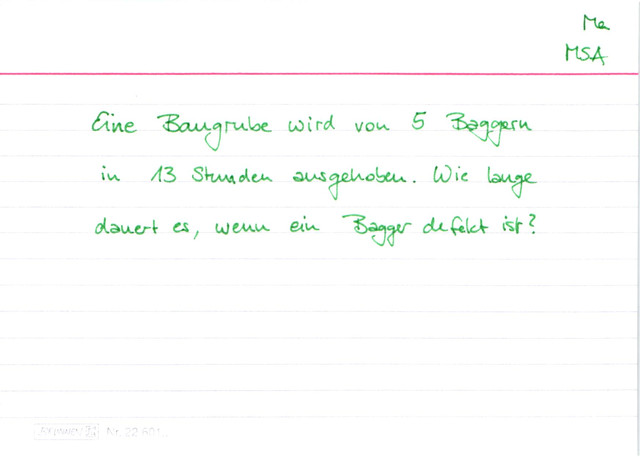 Ma
MSA
Eine Baugrube wird von 5 Baggern
in 13 Stunden ausgehoben. Wie lange
dauert es, wenn ein Bagger defekt ist?
Nr. 22 601